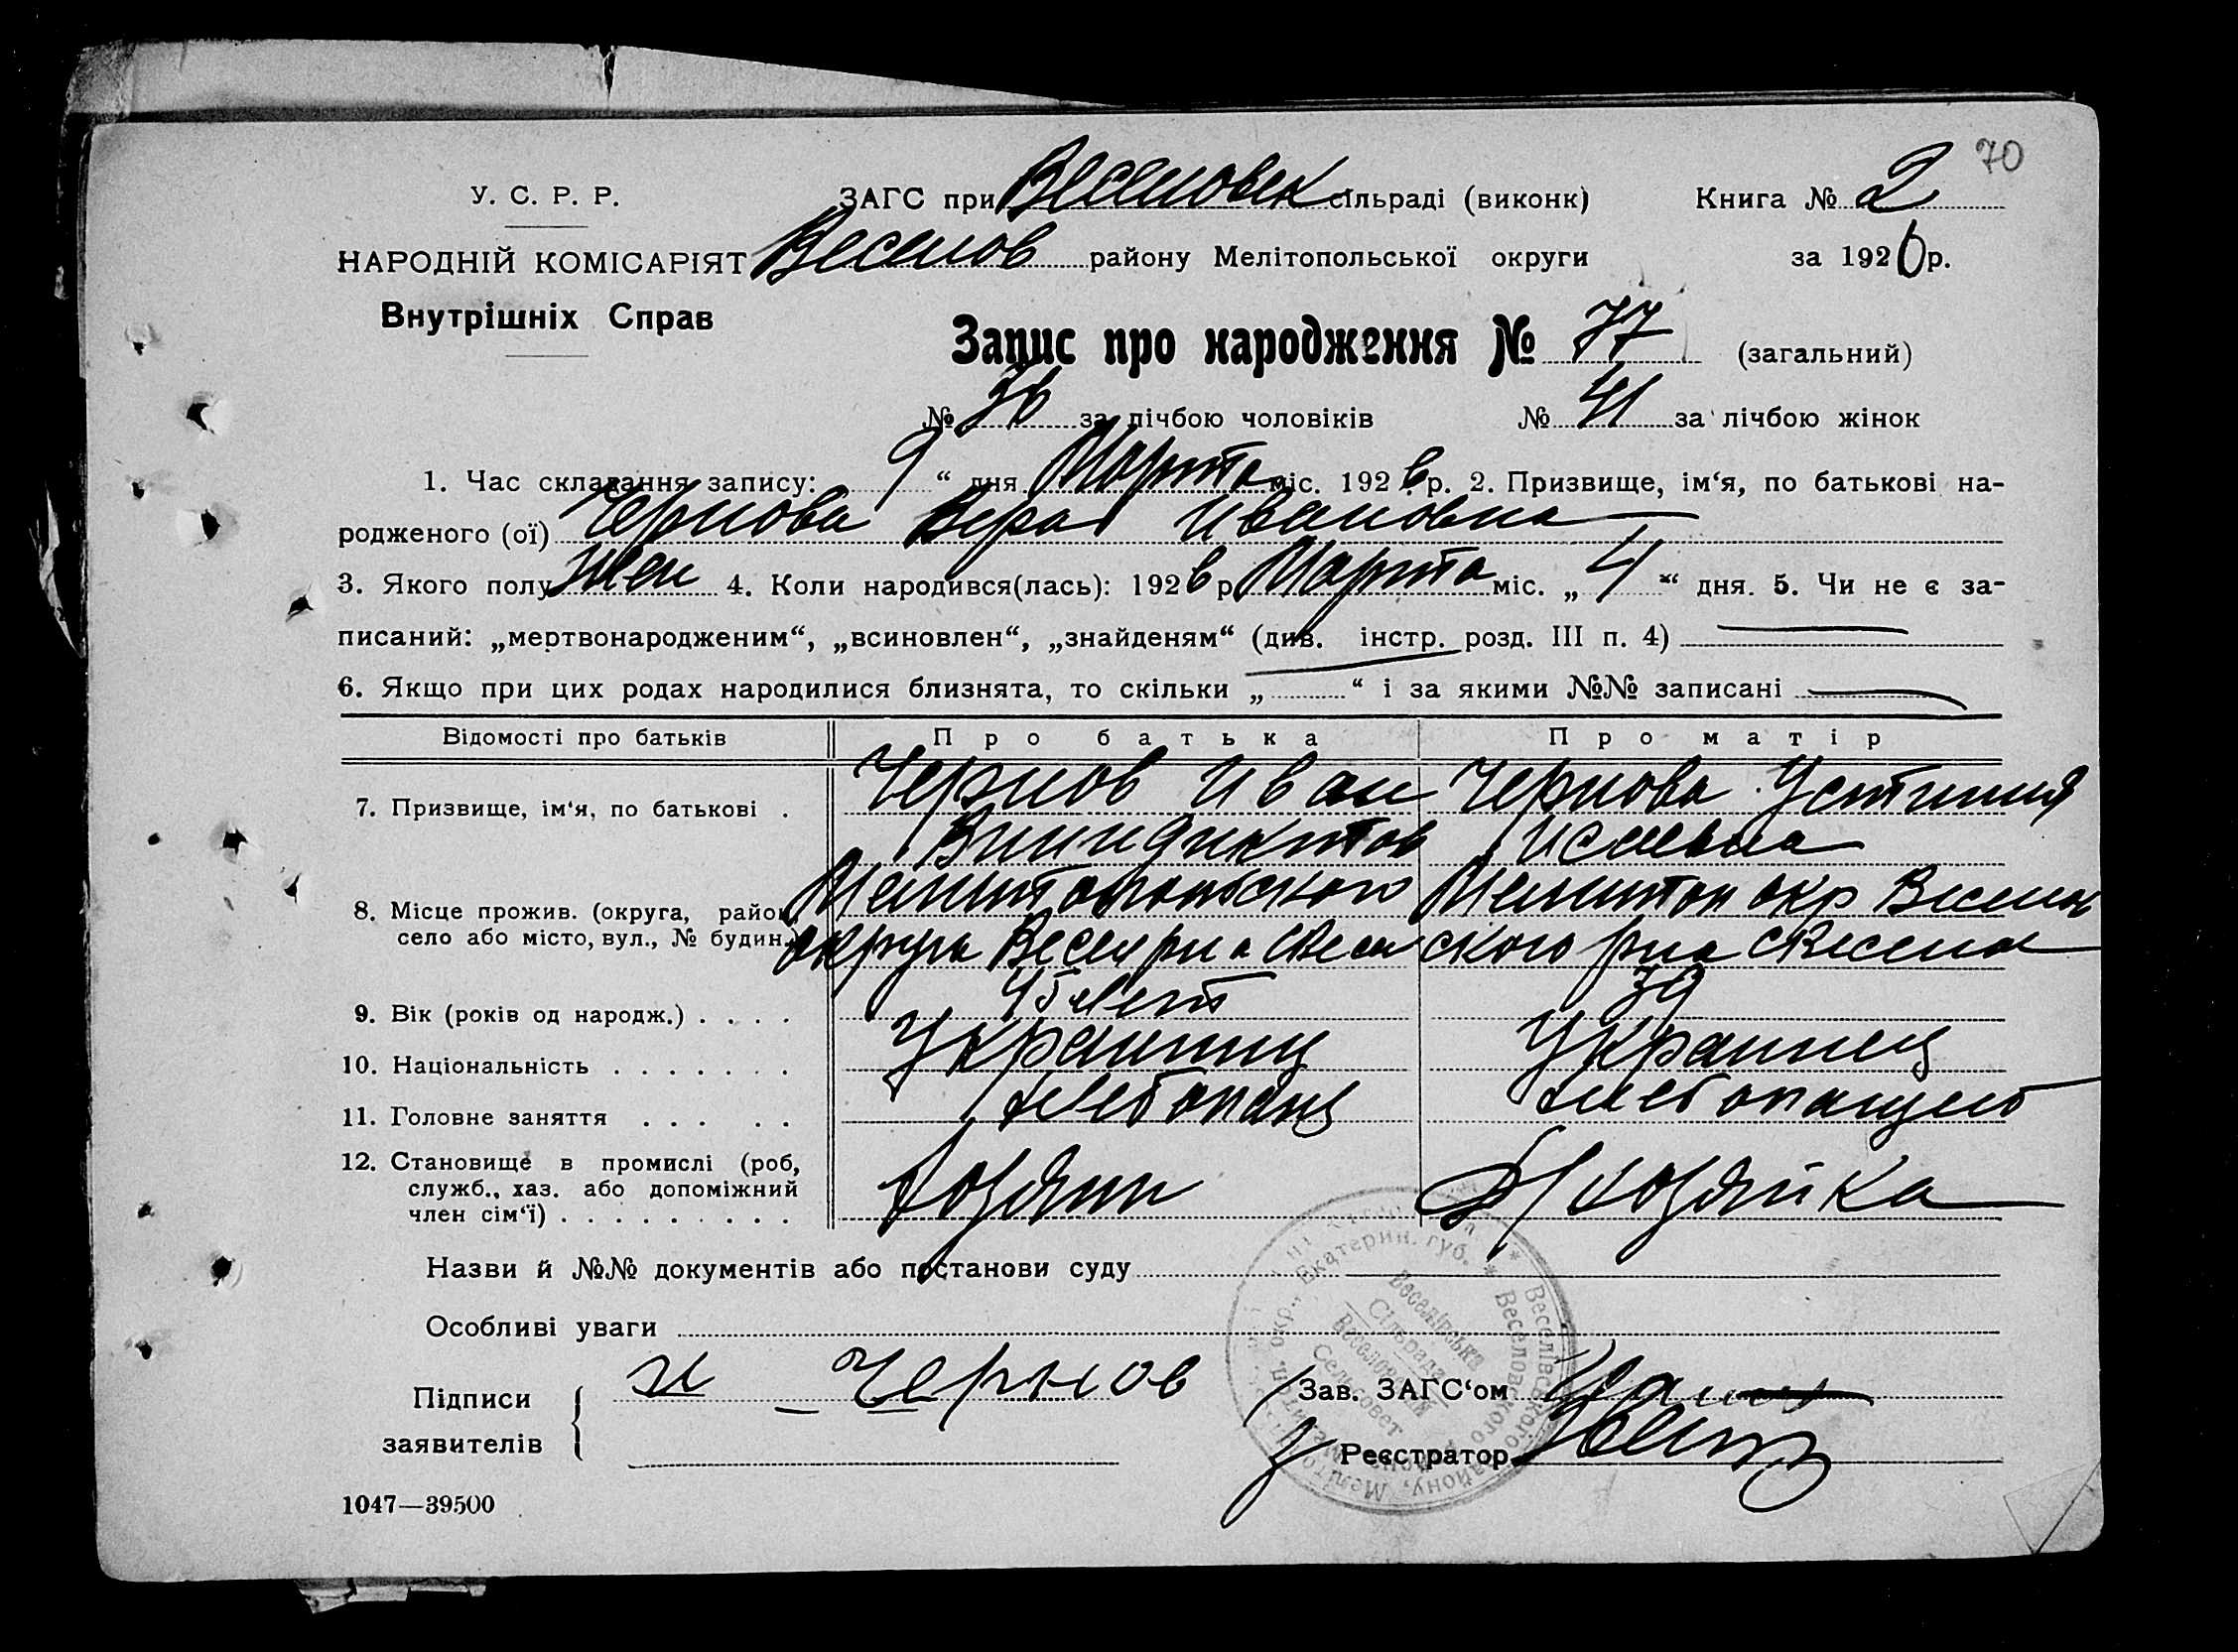 70
У. С. Р. Р. ЗАГС при Веселовск сільраді (виконк) Книга № 2
НАРОДНІЙ КОМІСАРІЯТ Веселов району Мелітопольської округи за 1926 р.
Внутрішніх Справ
Запис про народження № 77 (загальний)
№ 36 за лічбою чоловіків № 41 за лічбою жінок
1. Час складання запису: 9 “ дня Марта міс. 1926 р. 2. Призвище, ім‘я, по батькові на-
родженого (ої) Чернова Вера Ивановна
3. Якого полу жен 4. Коли народився(лась): 1926 р. Марта міс. „ 4 “ дня. 5. Чи не є за-
писаний: „мертвонародженим“, „всиновлен“, „знайденям“ (див. інстр. розд. III п. 4)
6. Якщо при цих родах народилися близнята, то скільки „ “ і за якими №№ записані
Відомості про батьків Про батька Про матір
7. Призвище, ім‘я, по батькові . Чернов Иван Чернова Устиния
Винидиктов
8. Місце прожив. (округа, район, Мелитопольского Мелитоп окр Веселов
село або місто, вул., № будин.) округа Весел рна с Весел ского рна с Весела
9. Вік (років од народж.) . . . . 45 лет 39
10. Національність . . . . . . . Украинец Украинец
11. Головне заняття . . . . . Хлебопашец
12. Становище в промислі (роб, Хозяин Хозяйка
служб., хаз. або допоміжний
член сім‘ї) . . . . . . . . .
Назви й №№ документів або постанови суду
Особливі уваги
Підписи
заявителів
И Чернов
Зав. ЗАГС‘ом
Реєстратор
Екатерин. губ. * Веселовского
Веселівського району, Меліто
Веселівська
Сільрада
Веселовский
Сельсовет
1047—39500